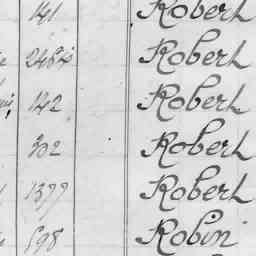 141 Robert
2484 Robert
142 Robert
302 Robert
1377 Robert
598 Robin